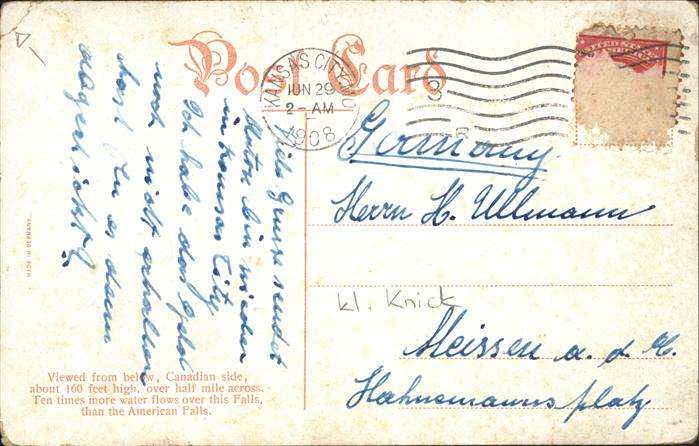 Post Card
KANSAS CITY, MO
JUN 29
2-AM
1908
Germany
Herrn H. Ullmann
kl. Knick
Meissen a. d. E.
Hahnemannsplatz
Grüsse sendet
bin wieder
in Kansas City
Ich habe das Geld
noch nicht erhalten
hast Du es denn
abgeschickt?
MADE IN GERMANY.
Viewed from below, Canadian side,
about 160 feet high, over half mile across.
Ten times more water flows over this Falls,
than the American Falls.